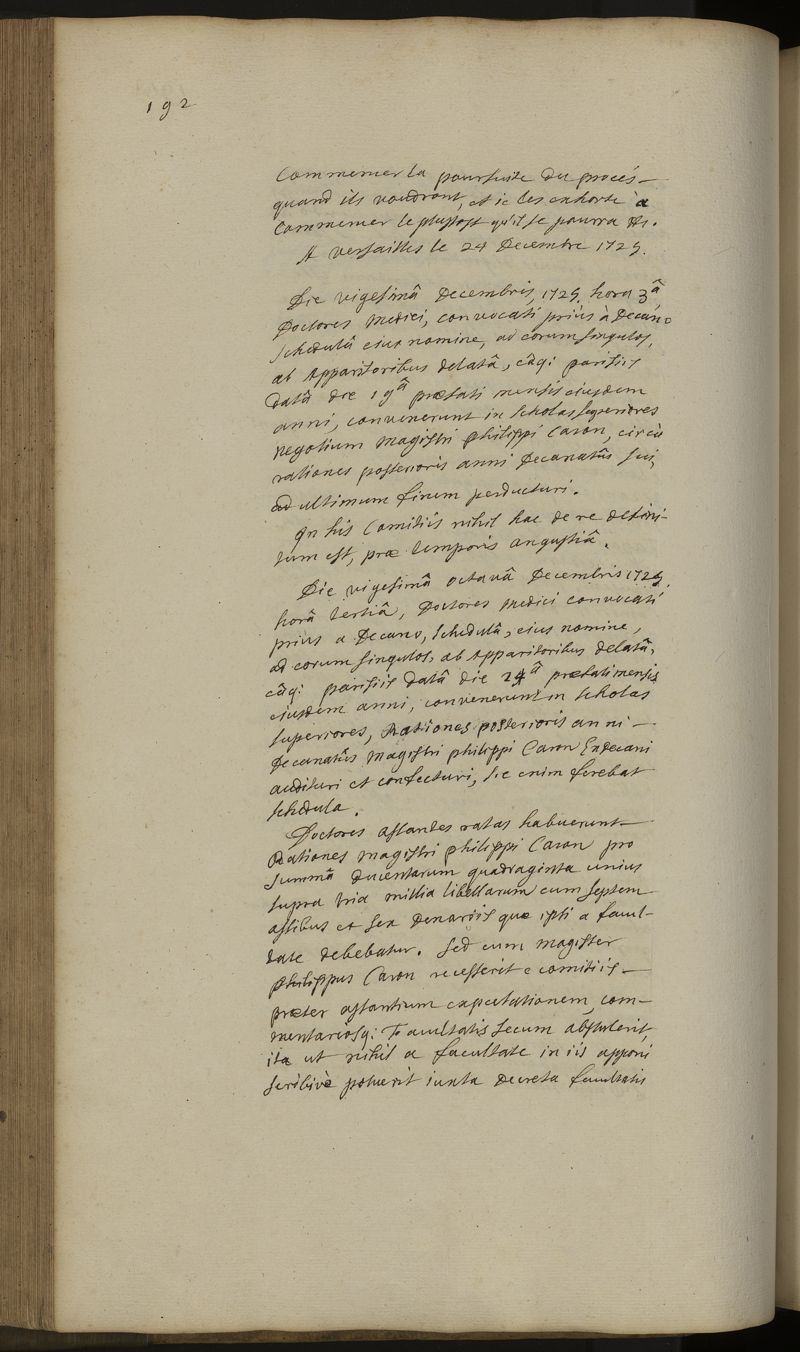 192
Commencer la poursuite du procés
quand ils voudront, et ie les exhorte à
Commencer le plustost qu'il se pourra
A versailles le 24 Decembre 1725.
Die vigesimâ Decembris, 1725. hora 3â
Doctores Medici, convocati prius à Decano
schedulâ eius nomine, ad eorum singulos,
ab Apparitoribus delatâ, eâq; parisiis
datâ die 19â praefati mensis eiusdem
anni, convenerunt in scholas superiores
negotium Magistri philippi Caron, circa
rationes posterioris anni Decanatûs sui,
ad ultimum finem perducturi.
In his Comitiis nihil hac de re defini-
tum est, prae temporis angustiâ.
Die vigesimâ octavâ Decembris 1725.
horâ tertiâ, Doctores Medici convocati
prius a Decano, schedulâ, eius nomine,
ad eorum singulos, ab Apparitoribus delatâ,
eâq; parisiis datâ die 24â praefati mensis
eiusdem anni, convenerunt in scholas
superiores, Rationes posterioris anni
Decanatûs Magistri philippi Caron Exdecani
audituri et confecturi, sic enim ferebat
schedula.
Doctores astantes ratas habuerunt
Rationes magistri philippi Caron pro
summâ ducentarum quadraginta unius
supra tria millia libellarum cum septem
assibus et sex denariis quae ipsi a facul-
tate debebatur. sed cum magister
philippus Caron recesserit e comitiis
praeter astantium expectationem, com-
mentariosq; Facultatis secum abstulerit,
ita ut nihil a facultate in iis apponi
scribive potuerit iuxta decreta facultatis